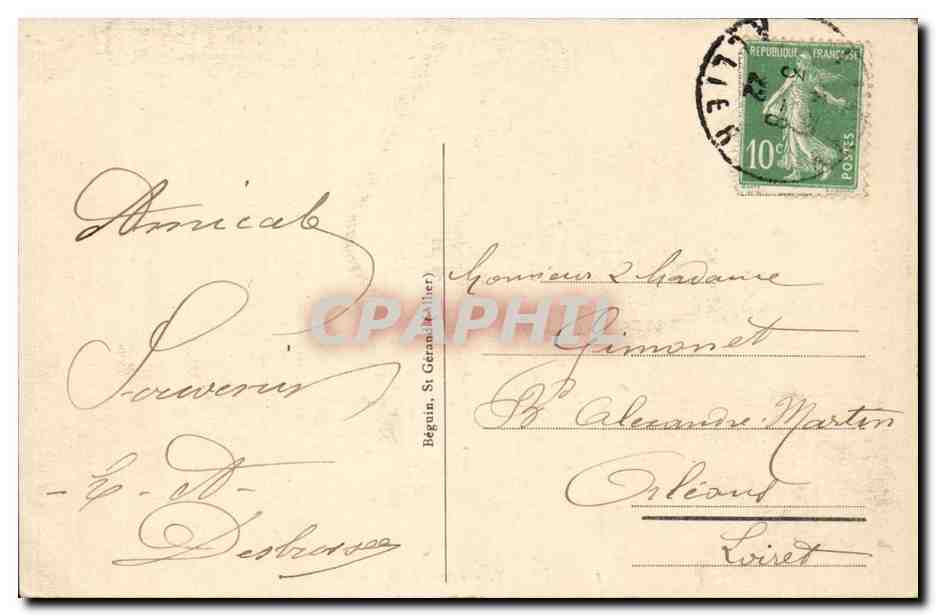 Amical
Souvenir
- H - A -
Desbrosse
Béguin, St Gérand (Allier)
REPUBLIQUE FRANÇAISE
10c
POSTES
22
Monsieur & Madame
Gimonet
Bd Alexandre Martin
Orléans
Loiret
CPAPHIL